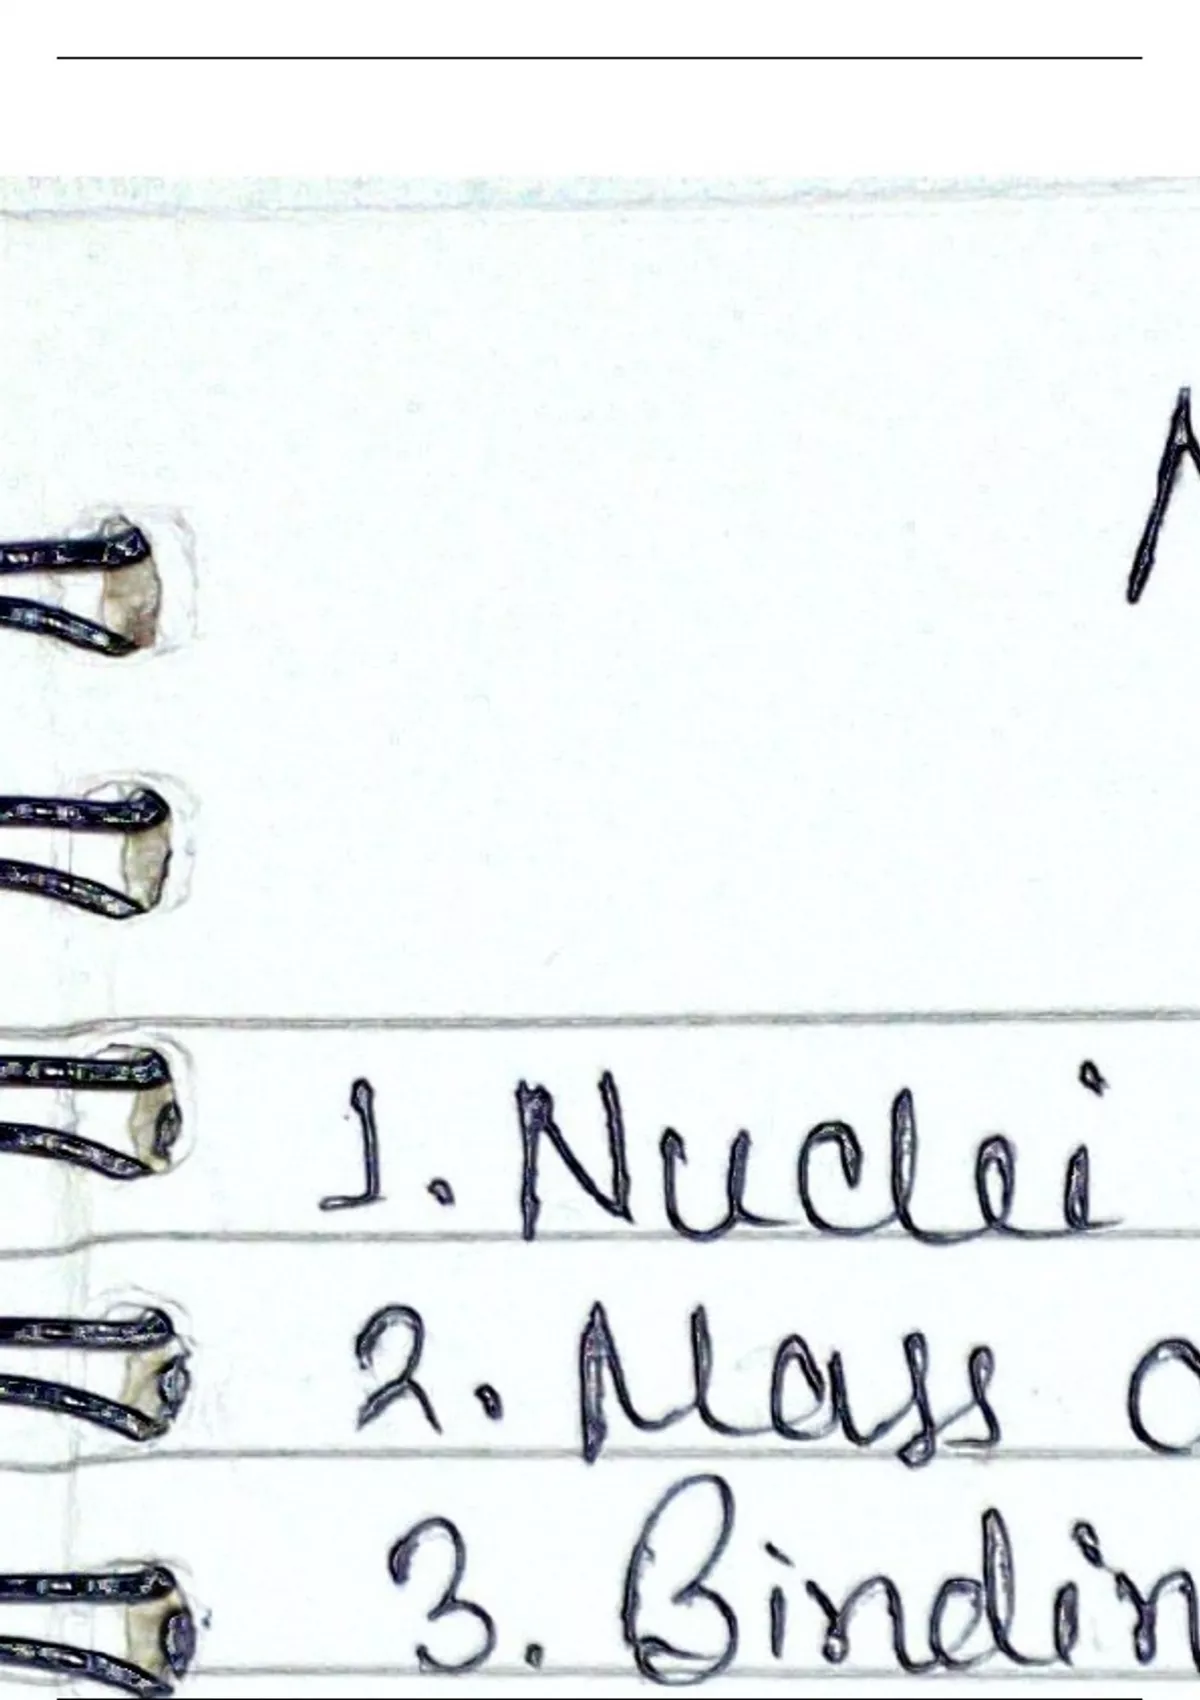 N
1. Nuclei
2. Mass o
3. Bindin